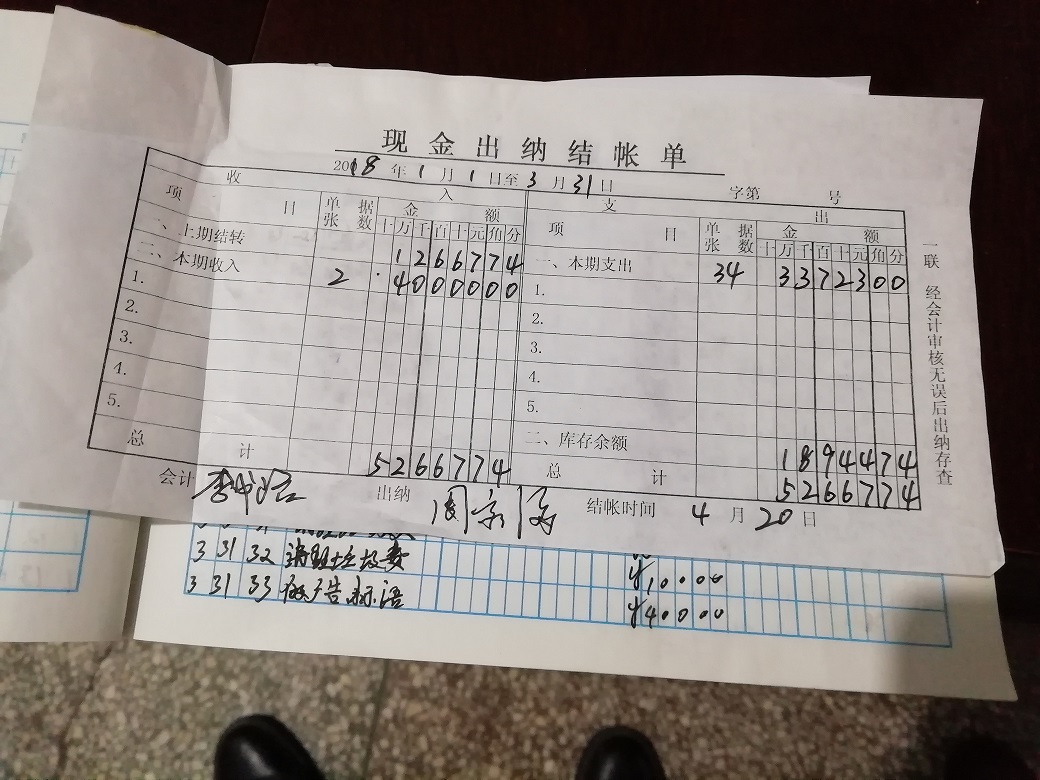 现金出纳结帐单
2018年1月1日至3月31日 字第 号
收入 支出
项目 单据张数 金额 项目 单据张数 金额
十万千百十元角分 十万千百十元角分
一、上期结转 1266774
二、本期收入 一、本期支出 34 3372300
1. 2 4000000 1.
2. 2.
3. 3.
4. 4.
5. 5.
二、库存余额 1894474
总计 5266774 总计 5266774
会计 出纳 结帐时间 4月20日
一联 经会计审核无误后出纳存查
3 31 32 清理垃圾费 ¥10000
3 31 33 做广告标语 ¥40000